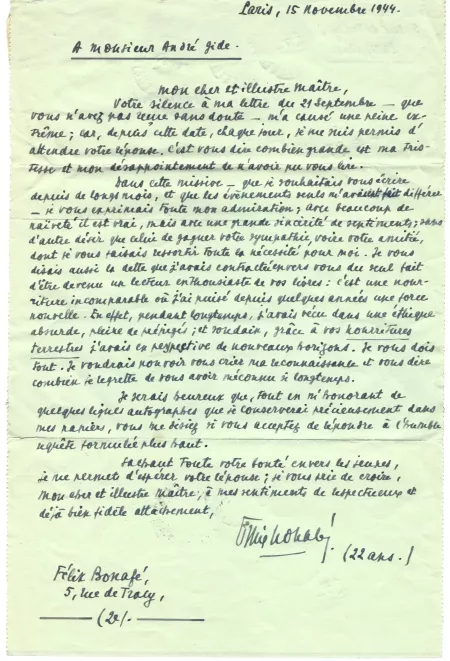 Paris, 15 Novembre 1944.
A Monsieur André Gide.
Mon cher et illustre Maître,
Votre silence à ma lettre du 29 Septembre — que
vous n'avez pas reçue sans doute — m'a causé une peine ex-
trême ; car, depuis cette date, chaque jour, je me suis permis d'
attendre votre réponse. C'est vous dire combien grande est ma tris-
tesse et mon désappointement de n'avoir pu vous lire.
Dans cette missive — que je souhaitais vous écrire
depuis de longs mois, et que les événements seuls m'avaient fait différer
— je vous exprimais toute mon admiration ; avec beaucoup de
naïveté il est vrai, mais avec une grande sincérité de sentiments ; sans
d'autre désir que celui de gagner votre sympathie, voire votre amitié,
dont je vous faisais ressortir toute la nécessité pour moi. Je vous
disais aussi la dette que j'avais contractée envers vous du seul fait
d'être devenu un lecteur enthousiaste de vos livres : c'est une nour-
riture incomparable où j'ai puisé depuis quelques années une force
nouvelle. En effet, pendant longtemps, j'avais vécu dans une éthique
absurde, pleine de préjugés ; et soudain, grâce à vos nourritures
terrestres j'avais en perspective de nouveaux horizons. Je vous dois
tout. Je voudrais pouvoir vous crier ma reconnaissance et vous dire
combien je regrette de vous avoir méconnu si longtemps.
Je serais heureux que, tout en m'honorant de
quelques lignes autographes que je conserverai précieusement dans
mes papiers, vous me disiez si vous acceptez de répondre à l'humble
requête formulée plus haut.
Sachant toute votre bonté envers les jeunes,
je me permets d'espérer votre réponse ; je vous prie de croire,
Mon cher et illustre Maître, à mes sentiments de respectueux et
déjà bien fidèle attachement,
(22 ans.)
Félix Bonafé,
5, rue de Tracy,
(2e).